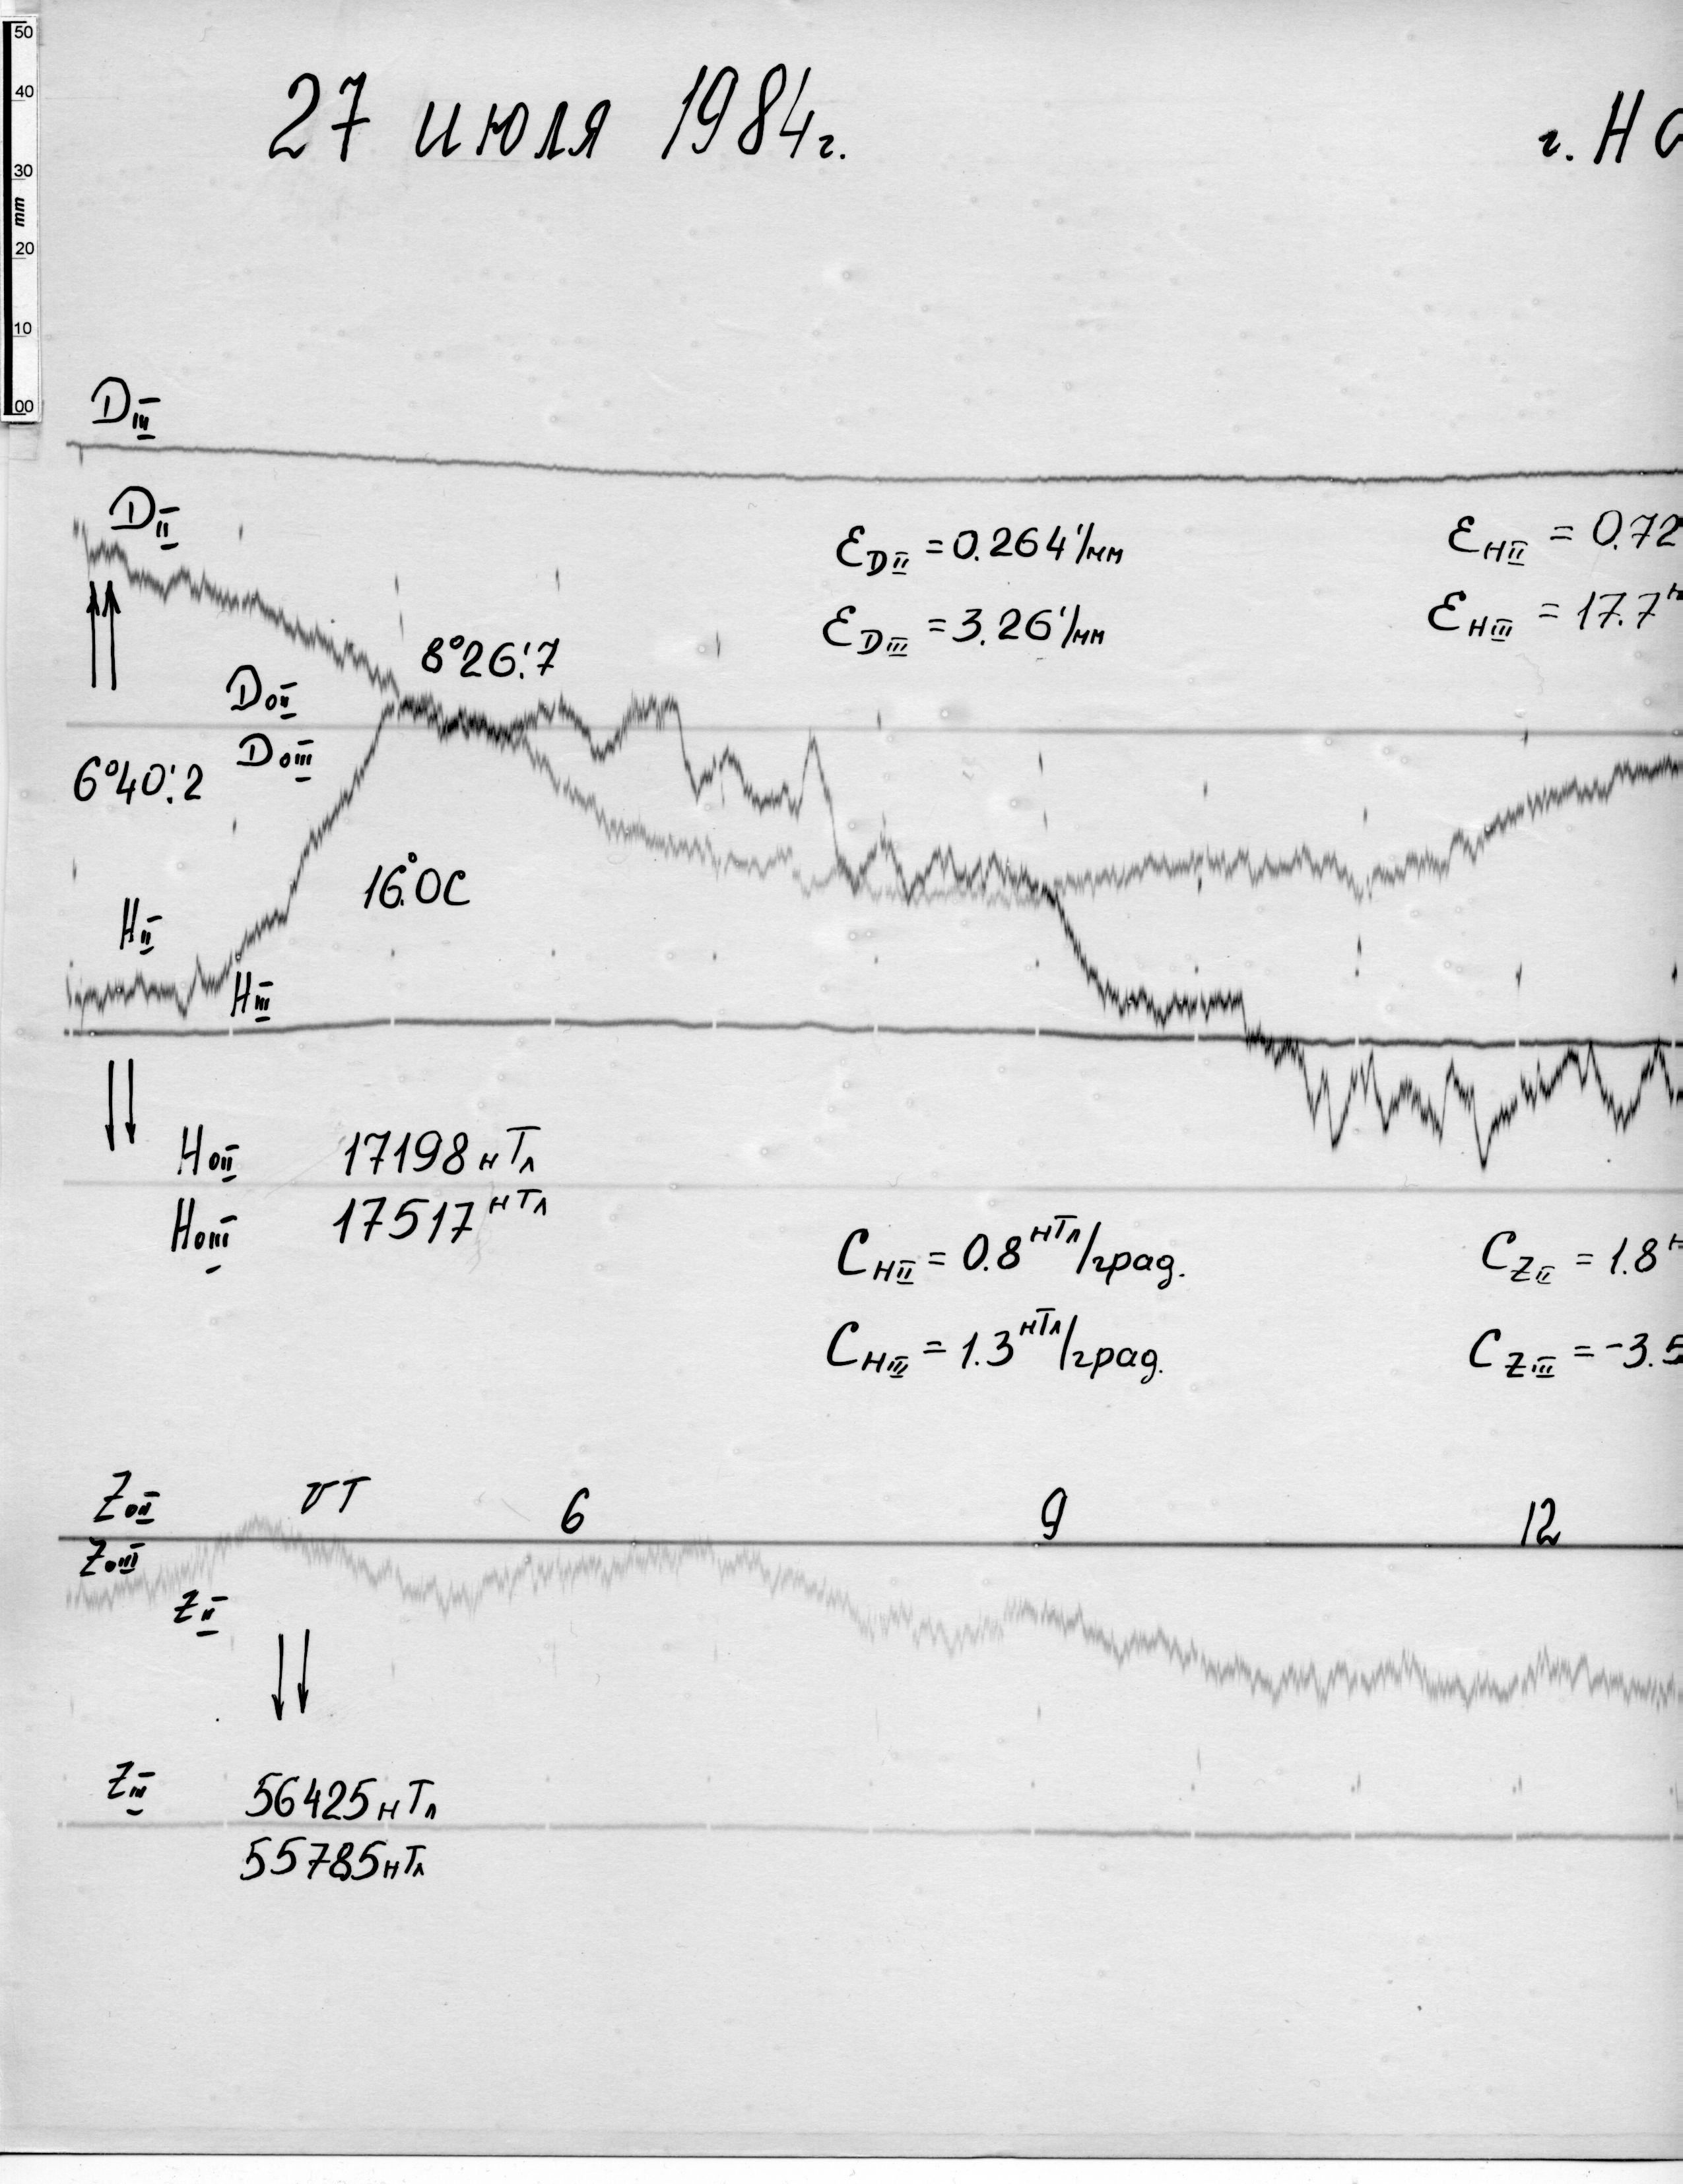 50
40
30
mm
20
10
00
27 июля 1984г.
г. Н
DIII
DII
εDII = 0.264'/мм
εHII = 0.72
εDIII = 3.26'/мм
εHIII = 17.7
8°26!7
DoII
DoIII
6°40!2
16°0C
HII
HIII
HoII 17198нТл
HoIII 17517нТл
CHII = 0.8нТл/град.
CZII = 1.8
CHIII = 1.3нТл/град.
CZIII = -3.5
ZoII
UT 6 9 12
ZoIII
ZII
ZIII
56425нТл
55785нТл